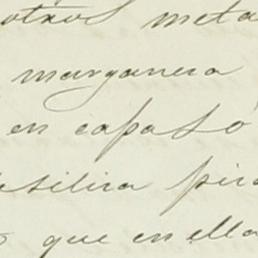 otros meta
manganesa
en capa só
silira pir
que en ella